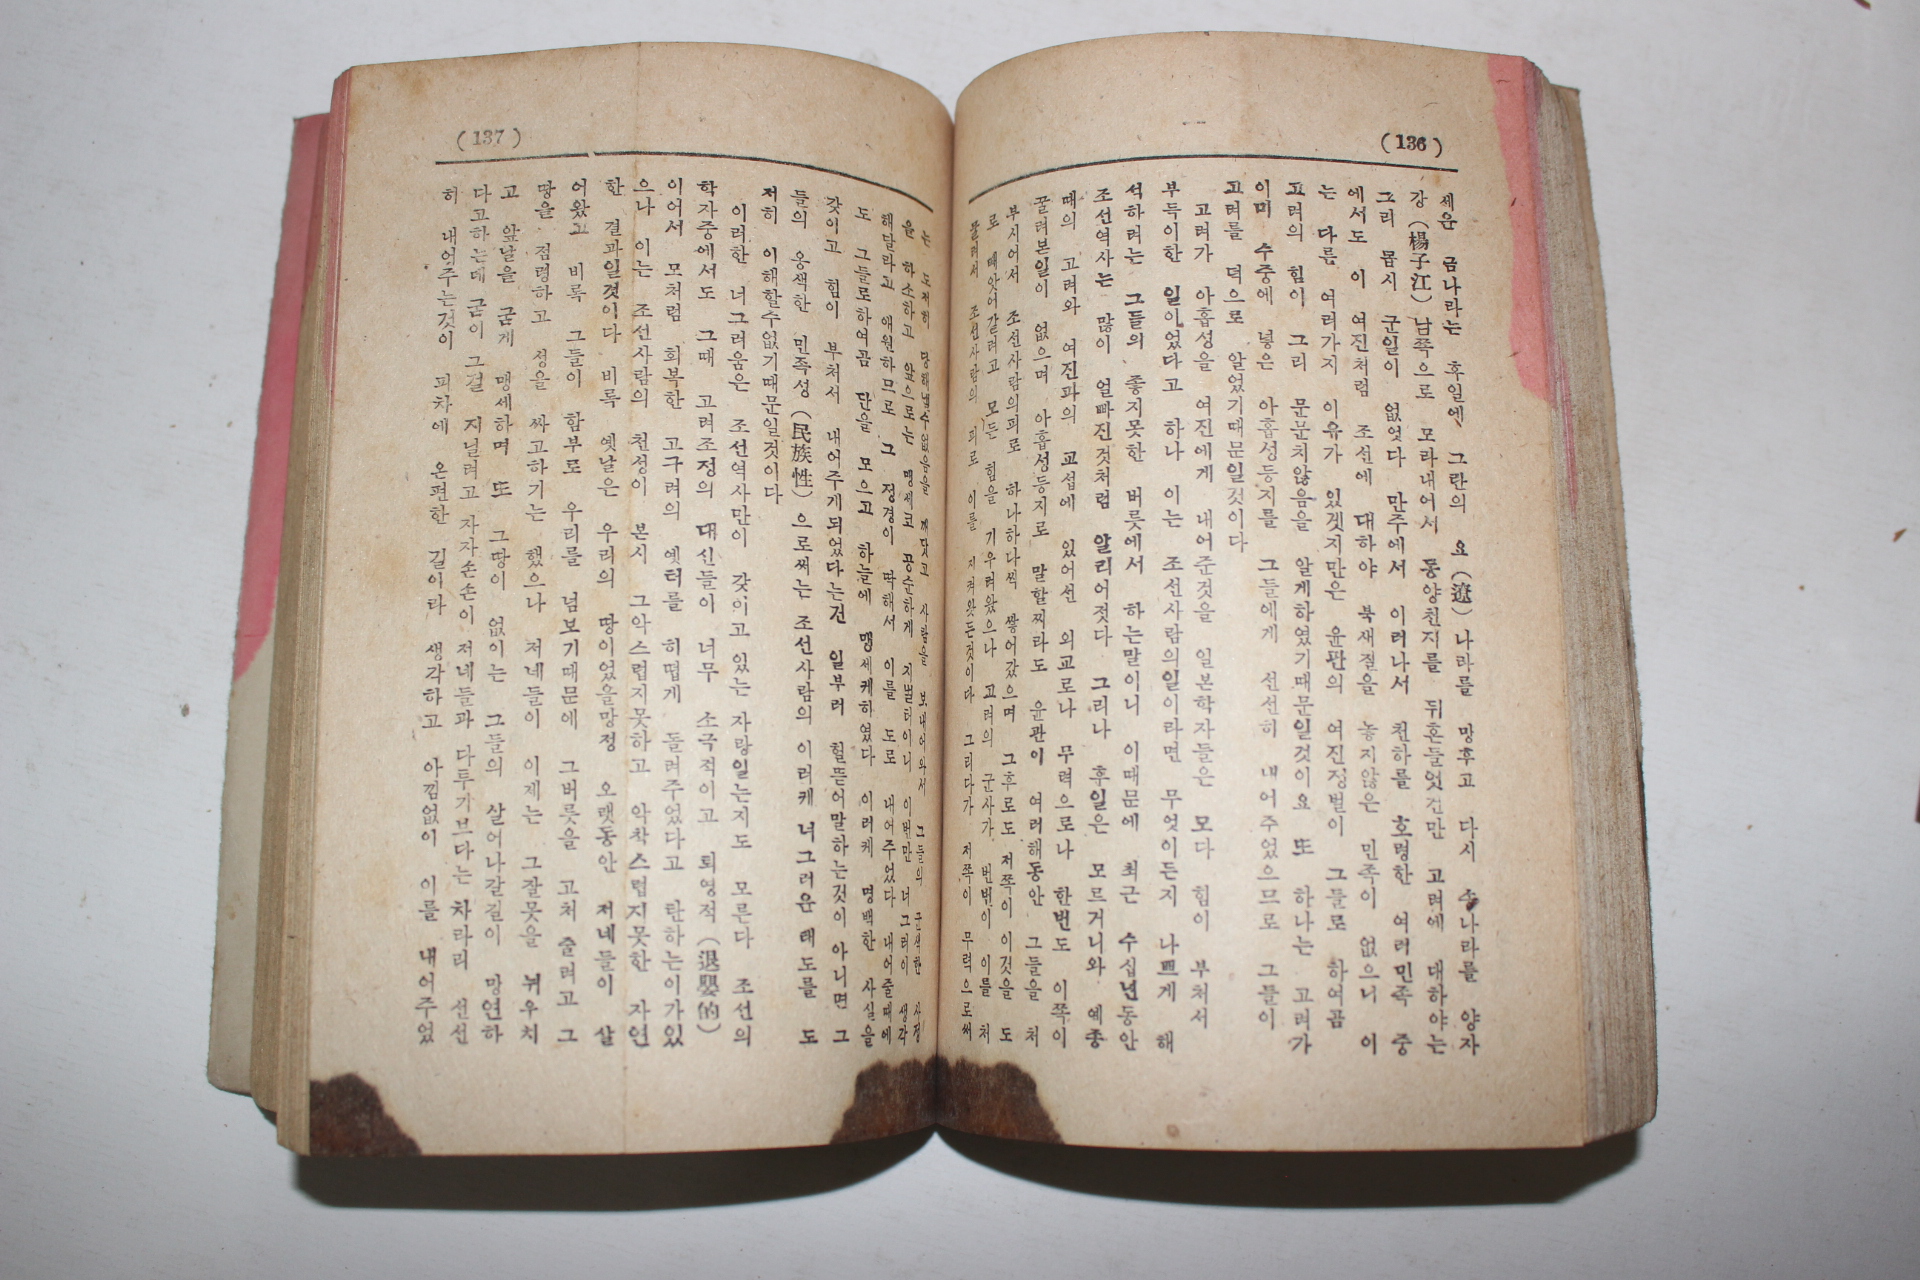 (136)
세운 금나라는 후일엔 그란의 요(遼)나라를 망후고 다시 송나라를 양자
강(楊子江)남쪽으로 모라내어서 동양천지를 뒤흔들엇건만 고려에 대하야는
그리 몹시 군일이 없엇다 만주에서 이러나서 천하를 호령한 여러민족 중
에서도 이 여진처럼 조선에 대하야 북새질을 놓지않은 민족이 없으니 이
는 다른 여러가지 이유가 있겟지만은 윤관의 여진정벌이 그들로 하여곰
고려의 힘이 그리 문문치않음을 알게하였기때문일것이요 또 하나는 고려가
이미 수중에 넣은 아홉성등지를 그들에게 선선히 내어주었으므로 그들이
고려를 덕으로 알었기때문일것이다
고려가 아홉성을 여진에게 내어준것을 일본학자들은 모다 힘이 부처서
부득이한 일이었다고 하나 이는 조선사람의일이라면 무엇이든지 나쁘게 해
석하려는 그들의 좋지못한 버릇에서 하는말이니 이때문에 최근 수십년동안
조선역사는 많이 얼빠진것처럼 알리어젓다 그러나 후일은 모르거니와 예종
때의 고려와 여진과의 교섭에 있어선 외교로나 무력으로나 한번도 이쪽이
꿀려본일이 없으며 아홉성등지로 말할찌라도 윤관이 여러해동안 그들을 처
부시어서 조선사람의피로 하나하나씩 쌓어갔으며 그후로도 저쪽이 이것을 도
로 빼앗어갈려고 모든 힘을 기우려왔으나 고려의 군사가 번번이 이를 처
물려서 조선사람의 피로 이를 지켜왓든것이다 그리다가 저쪽이 무력으로써
(137)
는 도저히 당해낼수없음을 깨닷고 사람을 보내어와서 그들의 군색한 사정
을 하소하고 앞으로는 맹세코 공순하게 지낼터이니 이번만 너그러이 생각
해달라고 애원하므로 그 정경이 딱해서 이를 도로 내어주었다 내어줄때에
도 그들로하여곰 단을 모으고 하늘에 맹세케하였다 이러케 명백한 사실을
갖이고 힘이 부처서 내어주게되었다는건 일부러 헐뜯어말하는것이 아니면 그
들의 옹색한 민족성(民族性)으로써는 조선사람의 이러케 너그러운 태도를 도
저히 이해할수없기때문일것이다
이러한 너그러움은 조선역사만이 갖이고있는 자랑일는지도 모른다 조선의
학자중에서도 그때 고려조정의 대신들이 너무 소극적이고 퇴영적(退嬰的)
이어서 모처럼 회복한 고구려의 옛터를 히떱게 돌려주었다고 탄하는이가있
으나 이는 조선사람의 천성이 본시 그악스럽지못하고 악착스럽지못한 자연
한 결과일것이다 비록 옛날은 우리의 땅이었을망정 오랫동안 저네들이 살
어왔고 비록 그들이 함부로 우리를 넘보기때문에 그버릇을 고처 줄려고 그
땅을 점령하고 성을 싸고하기는 했으나 저네들이 이제는 그잘못을 뉘우치
고 앞날을 굳게 맹세하며 또 그땅이 없이는 그들의 살어나갈길이 망연하
다고하는데 굳이 그걸 지닐려고 자자손손이 저네들과 다투기보다는 차라리 선선
히 내어주는것이 피차에 온편한 길이라 생각하고 아낌없이 이를 내어주었